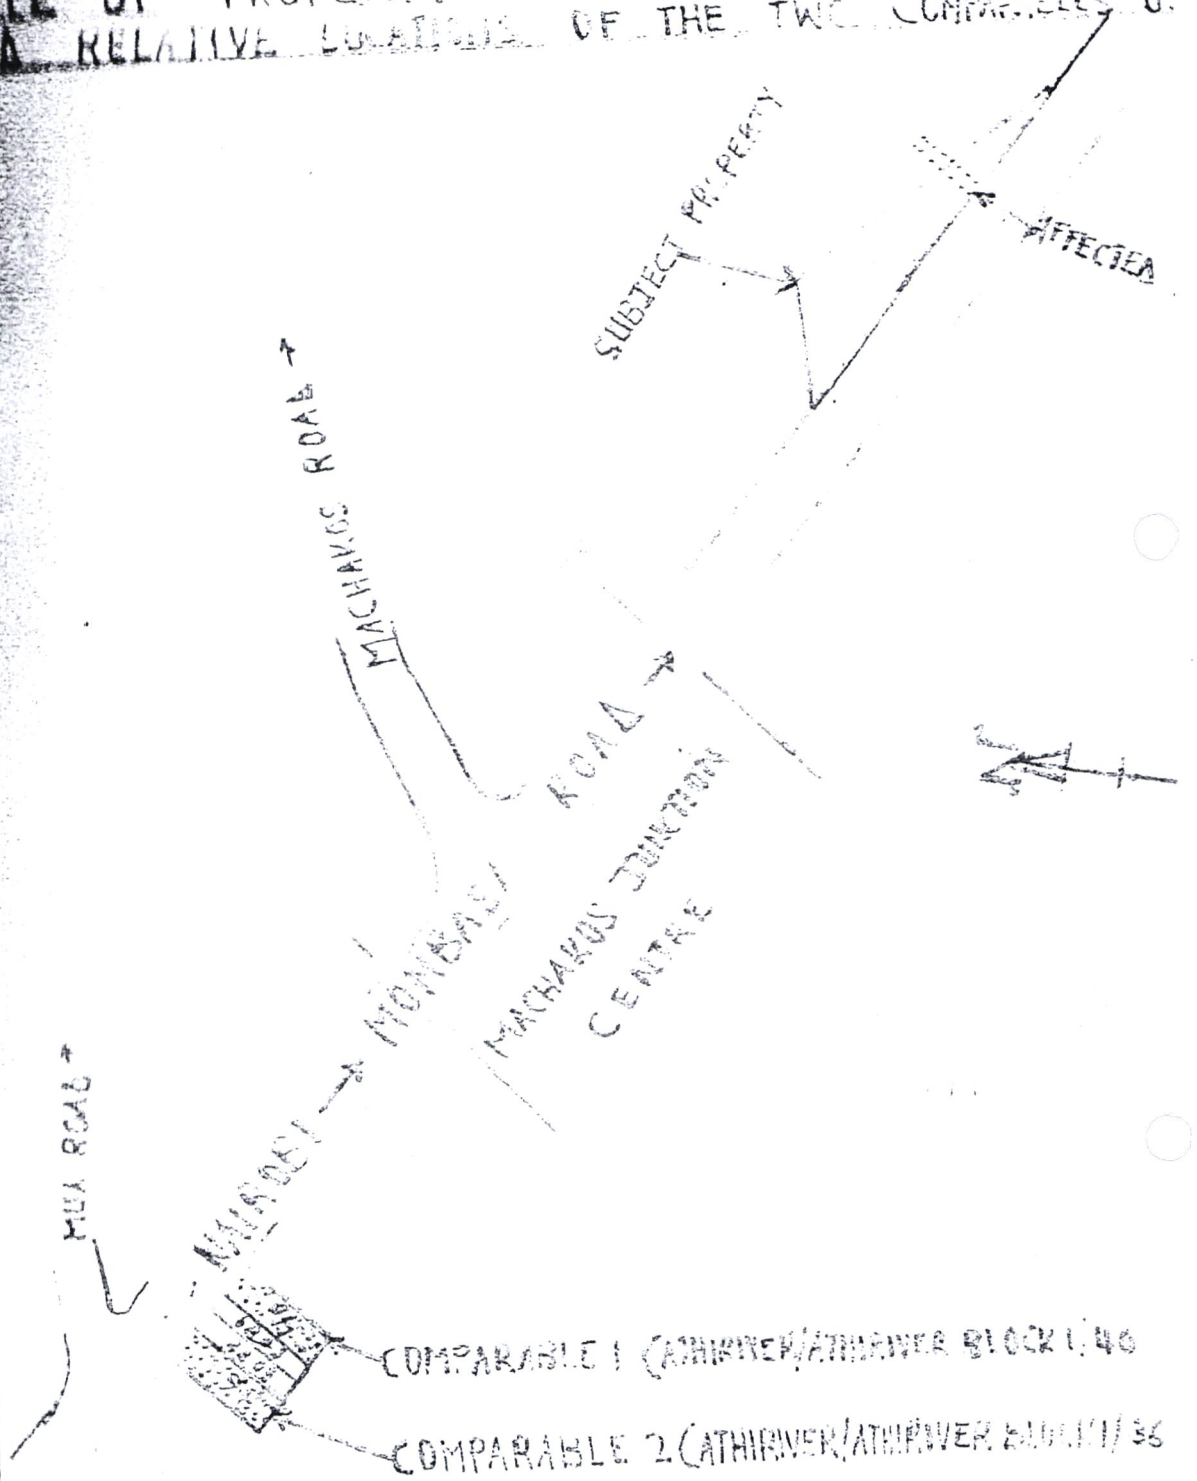 OF
RELATIVE LOCATIONS OF THE TWO
SUBJECT PROPERTY
AFFECTED
MACHAKOS ROAD
NAIROBI MOMBASA ROAD
MACHAKOS JUNCTION
CENTRE
MUA ROAD
COMPARABLE 1 (ATHIRIVER/ATHIRIVER BLOCK 1/40
COMPARABLE 2 (ATHIRIVER/ATHIRIVER BLOCK 1/36